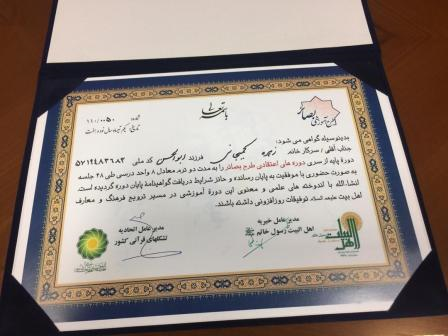 باسمه تعالی
شماره: ۱۱/۰۰۵۰
بصائر
بدینوسیله گواهی می شود:
جناب آقای / سرکار خانم زهره کمیجانی فرزند ابوالحسن کد ملی ۵۷۱۹۴۸۳۶۸۳
دوره پایه از سری دوره های اعتقادی طرح بصائر را به مدت دو ترم، معادل ۸ واحد درسی طی ۴۸ جلسه
به صورت حضوری با موفقیت به پایان رسانده و حائز شرایط دریافت گواهینامۀ پایان دوره گردیده است.
انشاءالله با اندوخته های علمی و معنوی این دورۀ آموزشی در مسیر ترویج فرهنگ و معارف
اهل بیت علیهم السلام، توفیقات روزافزونی داشته باشند.
مدیرعامل خیریه
اهل البیت رسول خاتم
مدیرعامل اتحادیه
تشکلهای قرآنی کشور